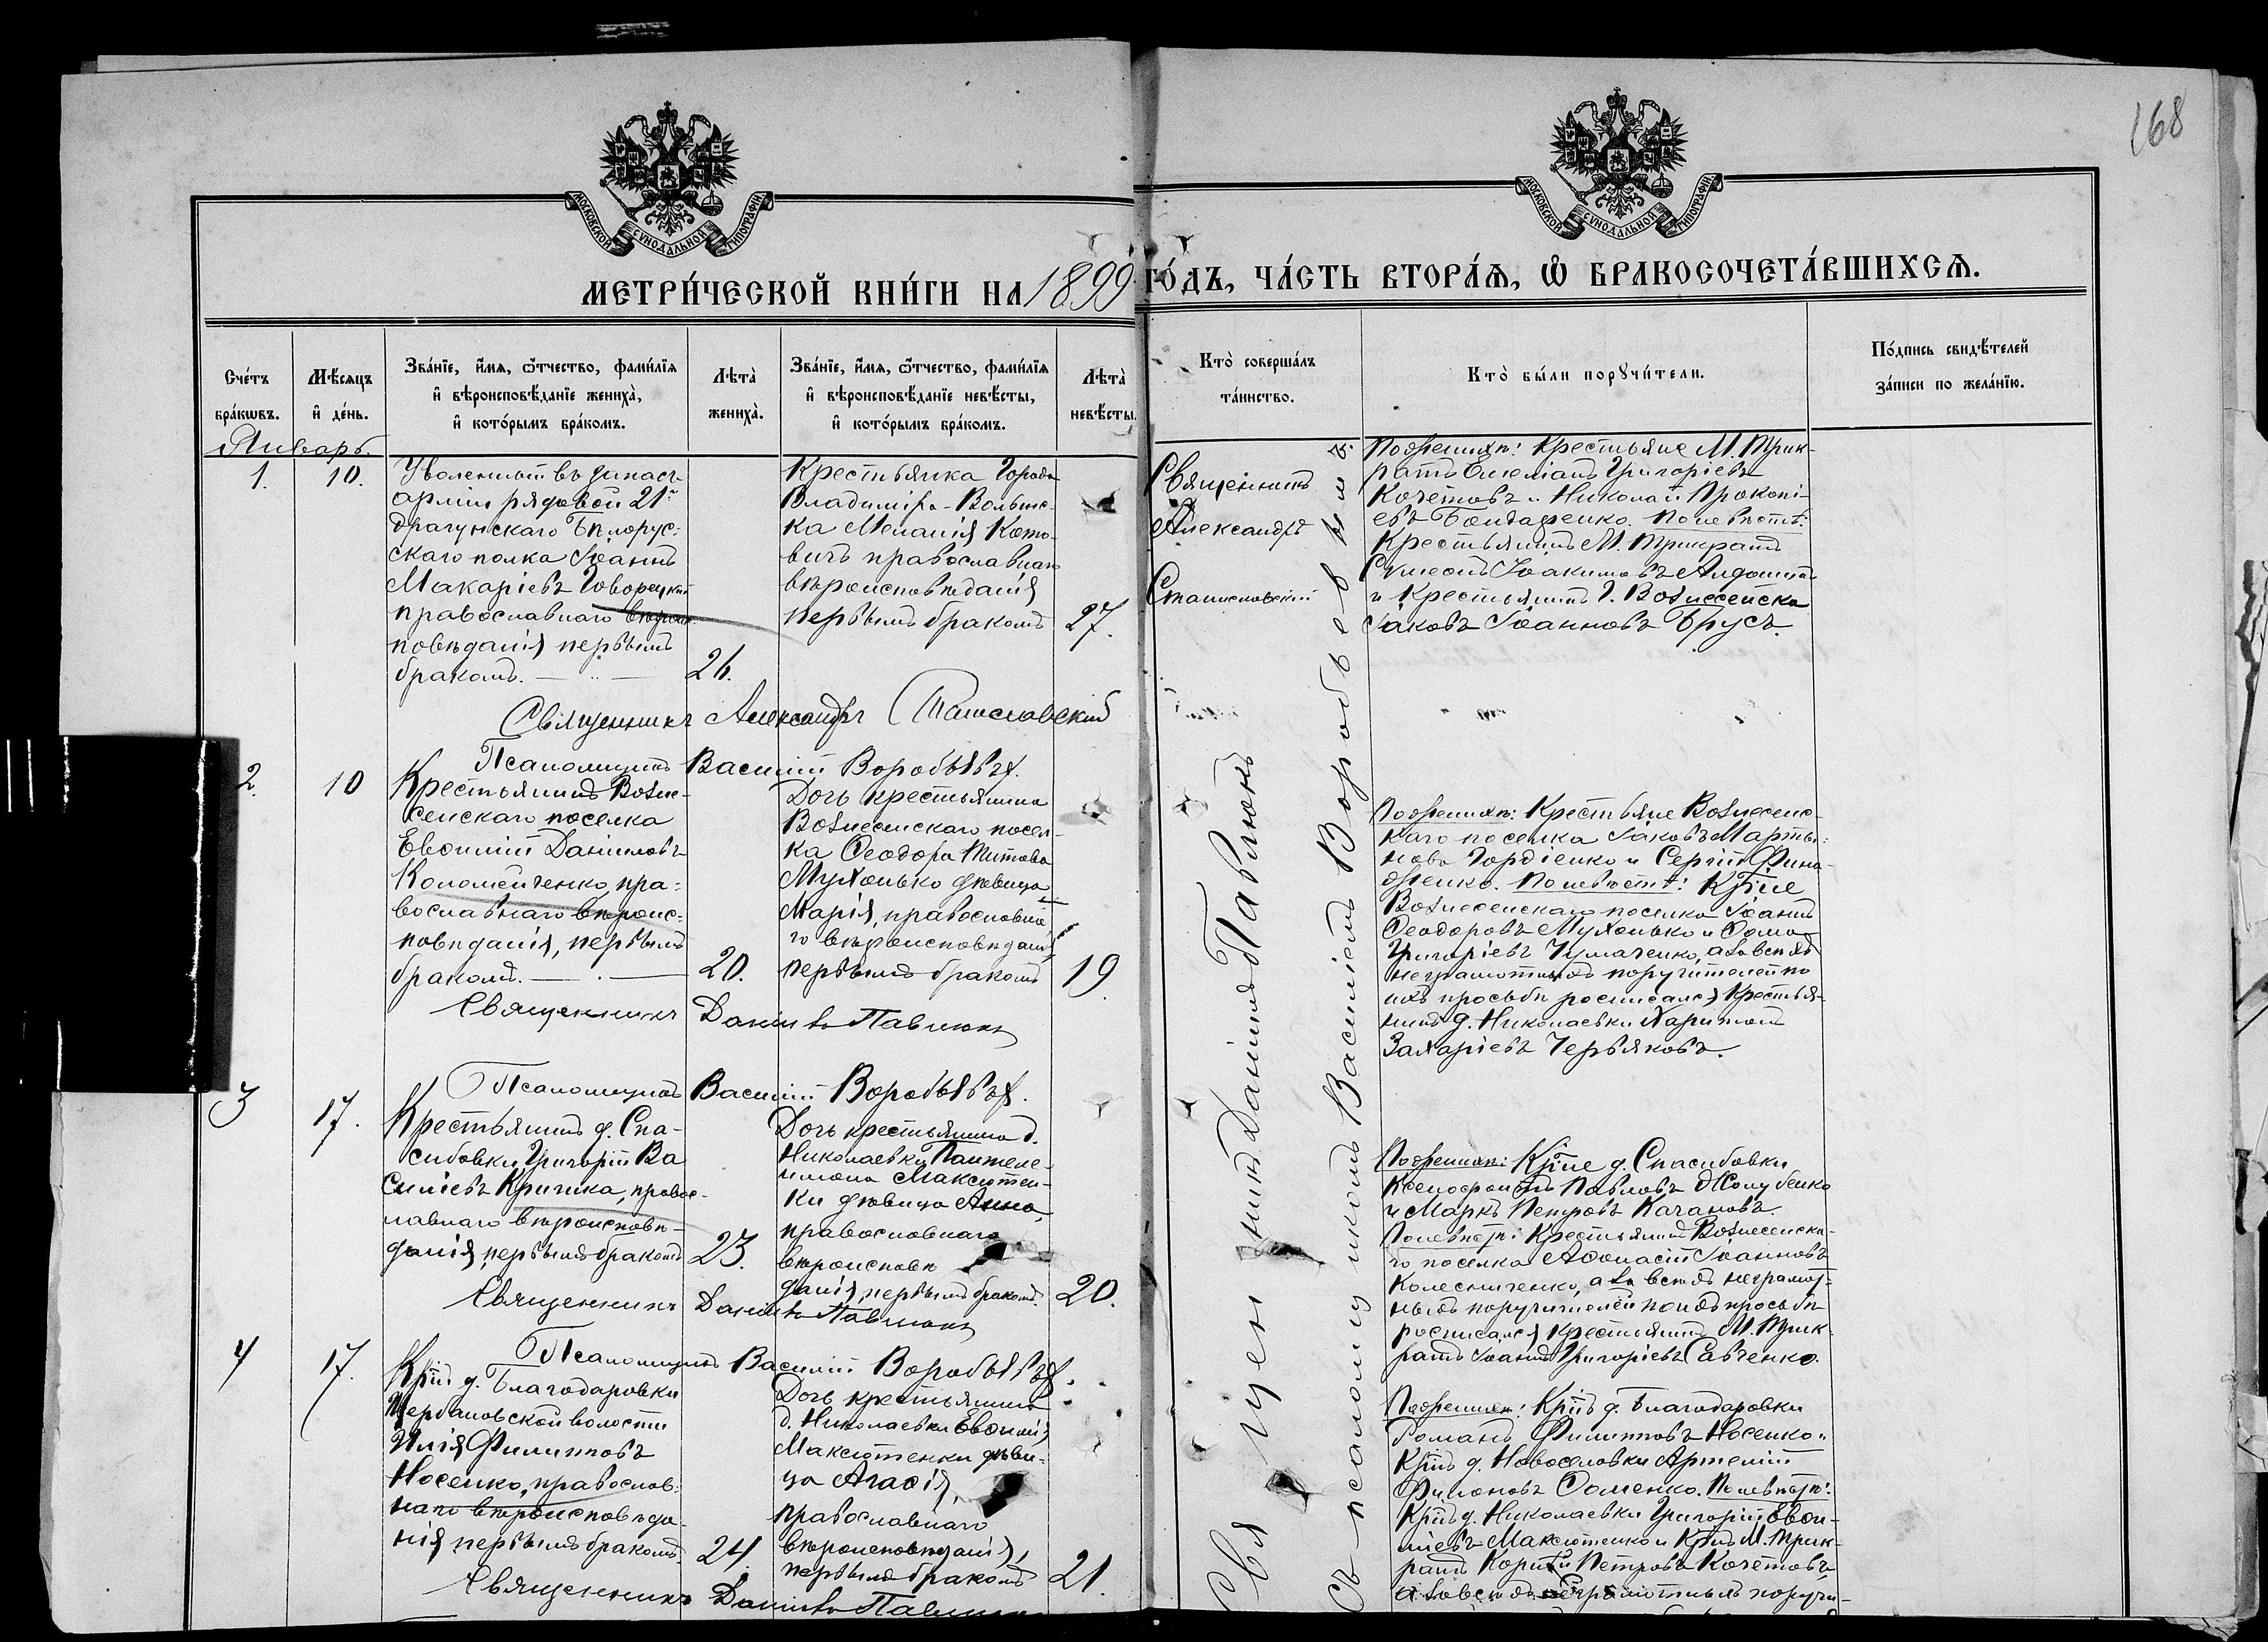 168
МОСКОВСКОЙ СѴНОДАЛЬНОЙ ТИПОГРАФІИ
МОСКОВСКОЙ СѴНОДАЛЬНОЙ ТИПОГРАФІИ
МЕТРИ́ЧЕСКОЙ КНИ́ГИ НА 1899 ГО́ДЪ, ЧА́СТЬ ВТОРА́Ѧ, Ѽ БРАКОСОЧЕТА́ВШИХСѦ.
Сче́тъ бра́кѡвъ.
Мѣ́сяцъ и҆ де́нь.
Зва́нїе, и҆́мя, ѻ҆́тчество, фами́лїя и҆ вѣроисповѣ́данїе жениха̀, и҆ кото́рымъ бра́комъ.
Лѣ́та̀ жениха̀.
Зва́нїе, и҆́мя, ѻ҆́тчество, фами́лїя и҆ вѣроисповѣ́данїе невѣ́сты, и҆ кото́рымъ бра́комъ.
Лѣ́та̀ невѣ́сты.
Кто̀ соверша́лъ та́инство.
Кто̀ бы́ли порꙋчи́тели.
По́дпись свидѣ́телей за́писи по жела́нїю.
Январь.
1. 10.
Уволенный въ запасъ
арміи рядовой 21го
драгунскаго Бѣлорус-
скаго полка Іоаннъ
Макаріевъ Говорецкій
православнаго вѣроис-
повѣданія первымъ
бракомъ. 26.
Крестьянка города
Владиміра-Волынс-
ка Меланія Кото-
вичъ православнаго
вѣроисповѣданія
первымъ бракомъ 27.
Священникъ
Александръ
Станиславскій
По женихѣ: Крестьяне М. Трик-
ратъ Григоріевъ
Кочетовъ и Николай Прокопі-
евъ Бондаренко. По невѣстѣ:
Крестьянинъ М. Трикратъ
Сѵмеонъ Іоакимовъ
и Крестьянинъ г. Вознесенска
Іаковъ Іоанновъ Брусъ.
Священникъ Александръ Станиславскій
Псаломщикъ Василій Воробьевъ.
2. 10
Крестьянинъ Возне-
сенскаго поселка
Евѳимій Даніиловъ
Коломейченко, пра-
вославнаго вѣроис-
повѣданія, первымъ
бракомъ. 20.
Дочь крестьянина
Вознесенскаго посел-
ка Ѳеодора Титова
Мухонько дѣвица
Марія, православна-
го вѣроисповѣданія,
первымъ бракомъ 19.
По женихѣ: Крестьяне Вознесенс-
каго поселка Іаковъ Марты-
новъ Гордіенко и Сергій
По невѣстѣ: Кр-не
Вознесенскаго поселка Іоаннъ
Ѳеодоровъ Мухонько и Ѳома
Григоріевъ Чумаченко, а за всѣхъ
неграмотныхъ поручителей по
ихъ просьбѣ росписался Крестья-
нинъ д. Николаевки Харитонъ
Захаріевъ Червяковъ.
Священникъ Даніилъ Павлюкъ
Псаломщикъ Василій Воробьевъ.
3 17.
Крестьянинъ д. Спа-
сибовки Григорій Ва-
силіевъ Кричка, правос-
лавнаго вѣроисповѣ-
данія, первымъ бракомъ 23.
Дочь крестьянина д.
Николаевки Пантеле-
имона Максютен-
ки дѣвица Анна,
православнаго
вѣроисповѣ
данія, первымъ бракомъ. 20.
По женихѣ: Кр-не д. Спасибовки
Ксенофонтъ Павловъ
и Маркъ Петровъ Качановъ.
По невѣстѣ: Крестьянинъ Вознесенска-
го поселка Аѳанасій Іоанновъ
Колесниченко, а за всѣхъ неграмот-
ныхъ поручителей по ихъ просьбѣ
росписался Крестьянинъ М. Трик-
ратъ Іоаннъ Григоріевъ Савченко.
Священникъ Даніилъ Павлюкъ
Псаломщикъ Василій Воробьевъ.
4 17.
Кр-нъ д. Благодаровки
Щербановской волости
Илія Филипповъ
Носенко, православ-
наго вѣроисповѣда-
нія первымъ бракомъ. 24.
Дочь крестьянина
д. Николаевки Евѳимія
Максютенки дѣви-
ца Агаѳія,
православнаго
вѣроисповѣданія,
первымъ бракомъ 21.
По женихѣ: Кр-нъ д. Благодаровки
Романъ Филипповъ Носенко и
Кр-нъ д. Новоселовки Артемій
Филоновъ Ѳоменко. По невѣстѣ:
Кр-нъ д. Николаевки Григорій Евѳи-
міевъ Максютенко и Кр-нъ М. Трик-
ратъ Петровъ Кочетовъ
а за всѣхъ неграмотныхъ поручи-
Священникъ Даніилъ Павлюкъ
Священникъ Даніилъ Павлюкъ
Съ псаломщикомъ Василіемъ Воробьевымъ.